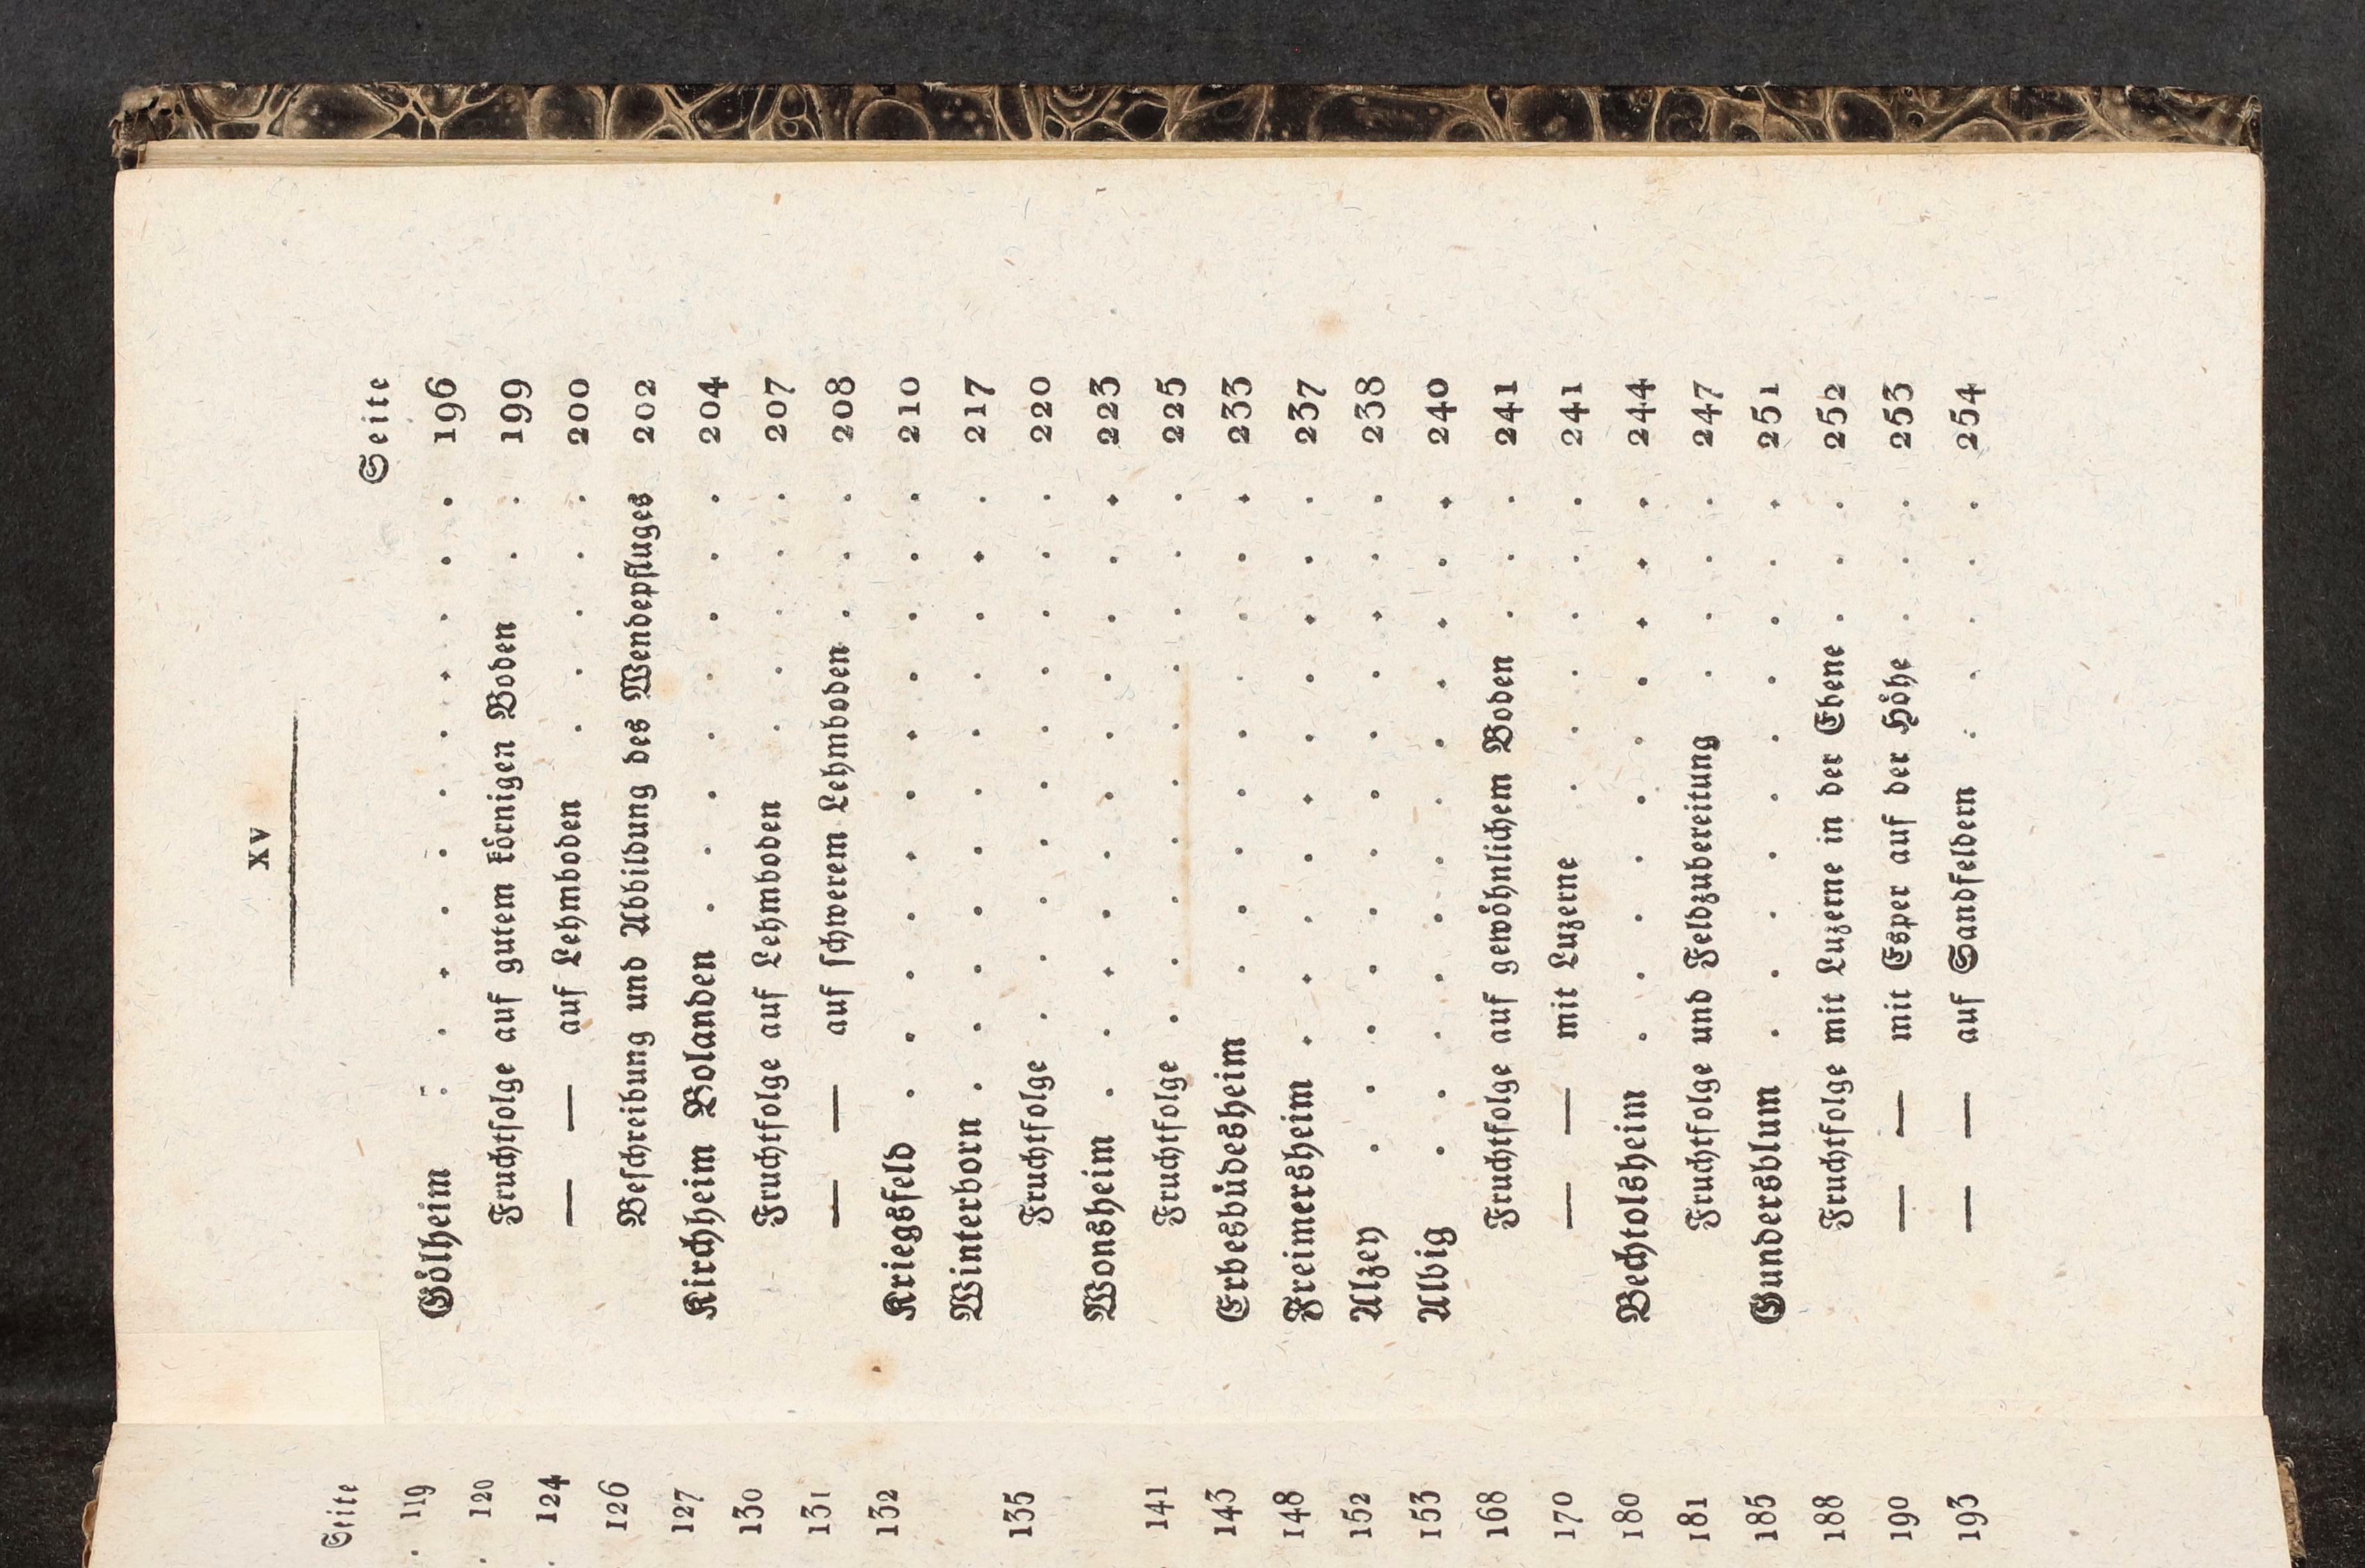 XV
Seite
Gölheim . . . . . . . . . . . 196
Fruchtfolge auf gutem körnigen Boden . . 199
— — auf Lehmboden . . . . . 200
Beschreibung und Abbildung des Wendepfluges 202
Kirchheim Bolanden . . . . . . . . 204
Fruchtfolge auf Lehmboden . . . . . 207
— — auf schwerem Lehmboden . . . 208
Kriegsfeld . . . . . . . . . . . 210
Winterborn . . . . . . . . . . . 217
Fruchtfolge . . . . . . . . . . 220
Wonsheim . . . . . . . . . . . 223
Fruchtfolge . . . . . . . . . . 225
Erbesbüdesheim . . . . . . . . . 233
Freimersheim . . . . . . . . . . 237
Alzey . . . . . . . . . . . . 238
Albig . . . . . . . . . . . . 240
Fruchtfolge auf gewöhnlichem Boden . . . 241
— — mit Luzerne . . . . . . 241
Bechtolsheim . . . . . . . . . . 244
Fruchtfolge und Feldzubereitung . . . . 247
Gundersblum . . . . . . . . . . 251
Fruchtfolge mit Luzerne in der Ebene . . . 252
— — mit Esper auf der Höhe . . . 253
— — auf Sandfeldern . . . . . 254
Seite
. 119
. 120
. 124
126
127
130
131
132
135
141
143
148
152
153
168
170
180
181
185
188
190
193